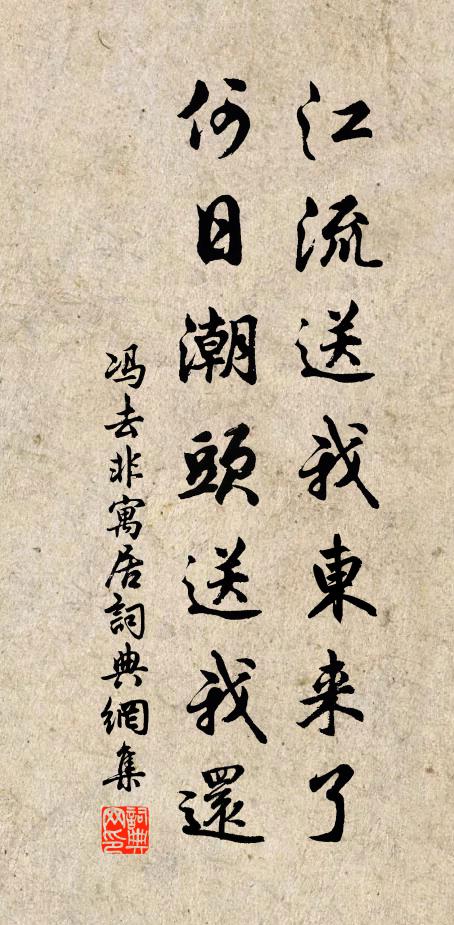 江流送我東来了
何日潮頭送我還
冯去非寓居詞典網集
詞典网印